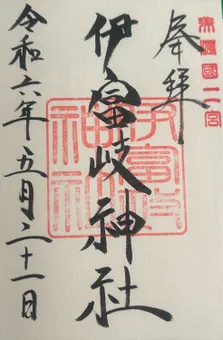 美濃國二宮
奉拝
伊富岐神社
伊富岐
神社
令和六年五月二十一日